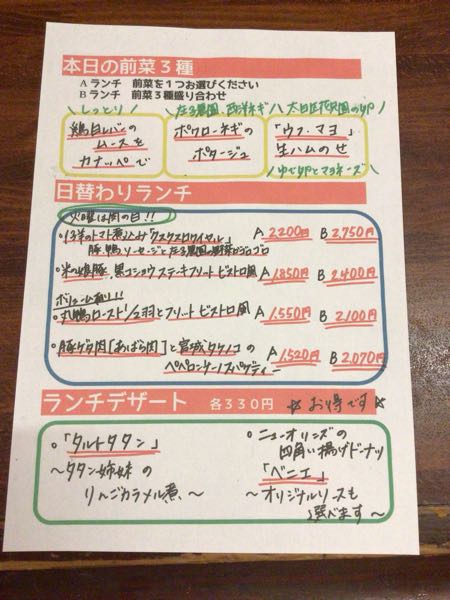 本日の前菜3種
Aランチ 前菜を1つお選びください
Bランチ 前菜3種盛り合わせ
しっとり
西洋ネギ
鶏白レバーの
ムースを
カナッペで
ポワローネギの
ポタージュ
「ウフ・マヨ」
生ハムのせ
ゆで卵とマヨネーズ
日替わりランチ
火曜は肉の日!!
仔羊のトマト煮込み「クスクスロワイヤル」 A 2200円 B 2,750円
豚、鴨、ソーセージと 野菜がゴロゴロ
黒コショウステーキフリット ビストロ風 A 1,850円 B 2,400円
ボリューム有り!!
丸鴨ロースト1/2羽とフリット ビストロ風 A 1,550円 B 2,100円
豚ゲタ肉[あばら肉]と宮城タケノコの
ペペロンチーノスパゲティー A 1,520円 B 2,070円
ランチデザート 各330円 ☆お得です☆
「タルトタタン」
〜タタン姉妹の
りんごカラメル煮〜
ニューオリンズの
四角い揚げドーナツ
「ベニエ」
〜オリジナルソースも
選べます〜